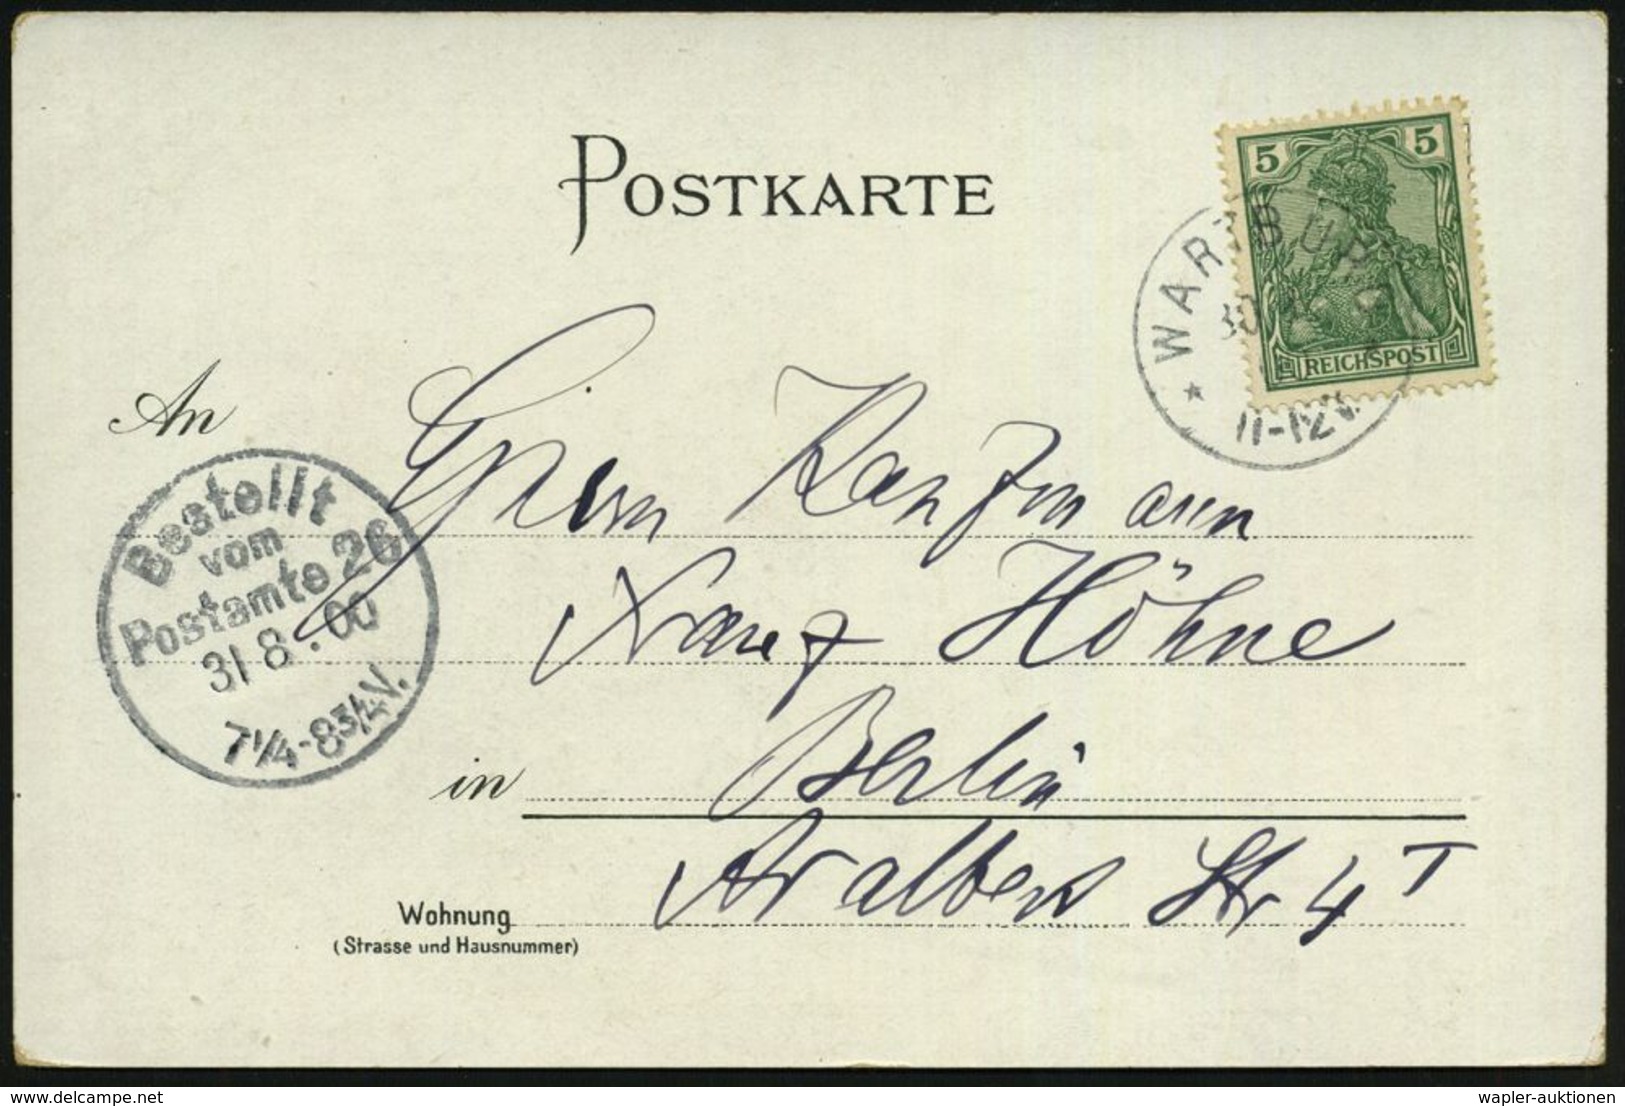 POSTKARTE
5 5
REICHSPOST
WARTBUR
30
11-12V.
An
Bestellt
vom
Postamte 26
31 8. 00
7 1/4-8 3/4 V.
Herrn Kaufmann
Franz Höhne
in Berlin
Str 4 I
Wohnung
(Strasse und Hausnummer)
delcampe.net
wapler-auktionen